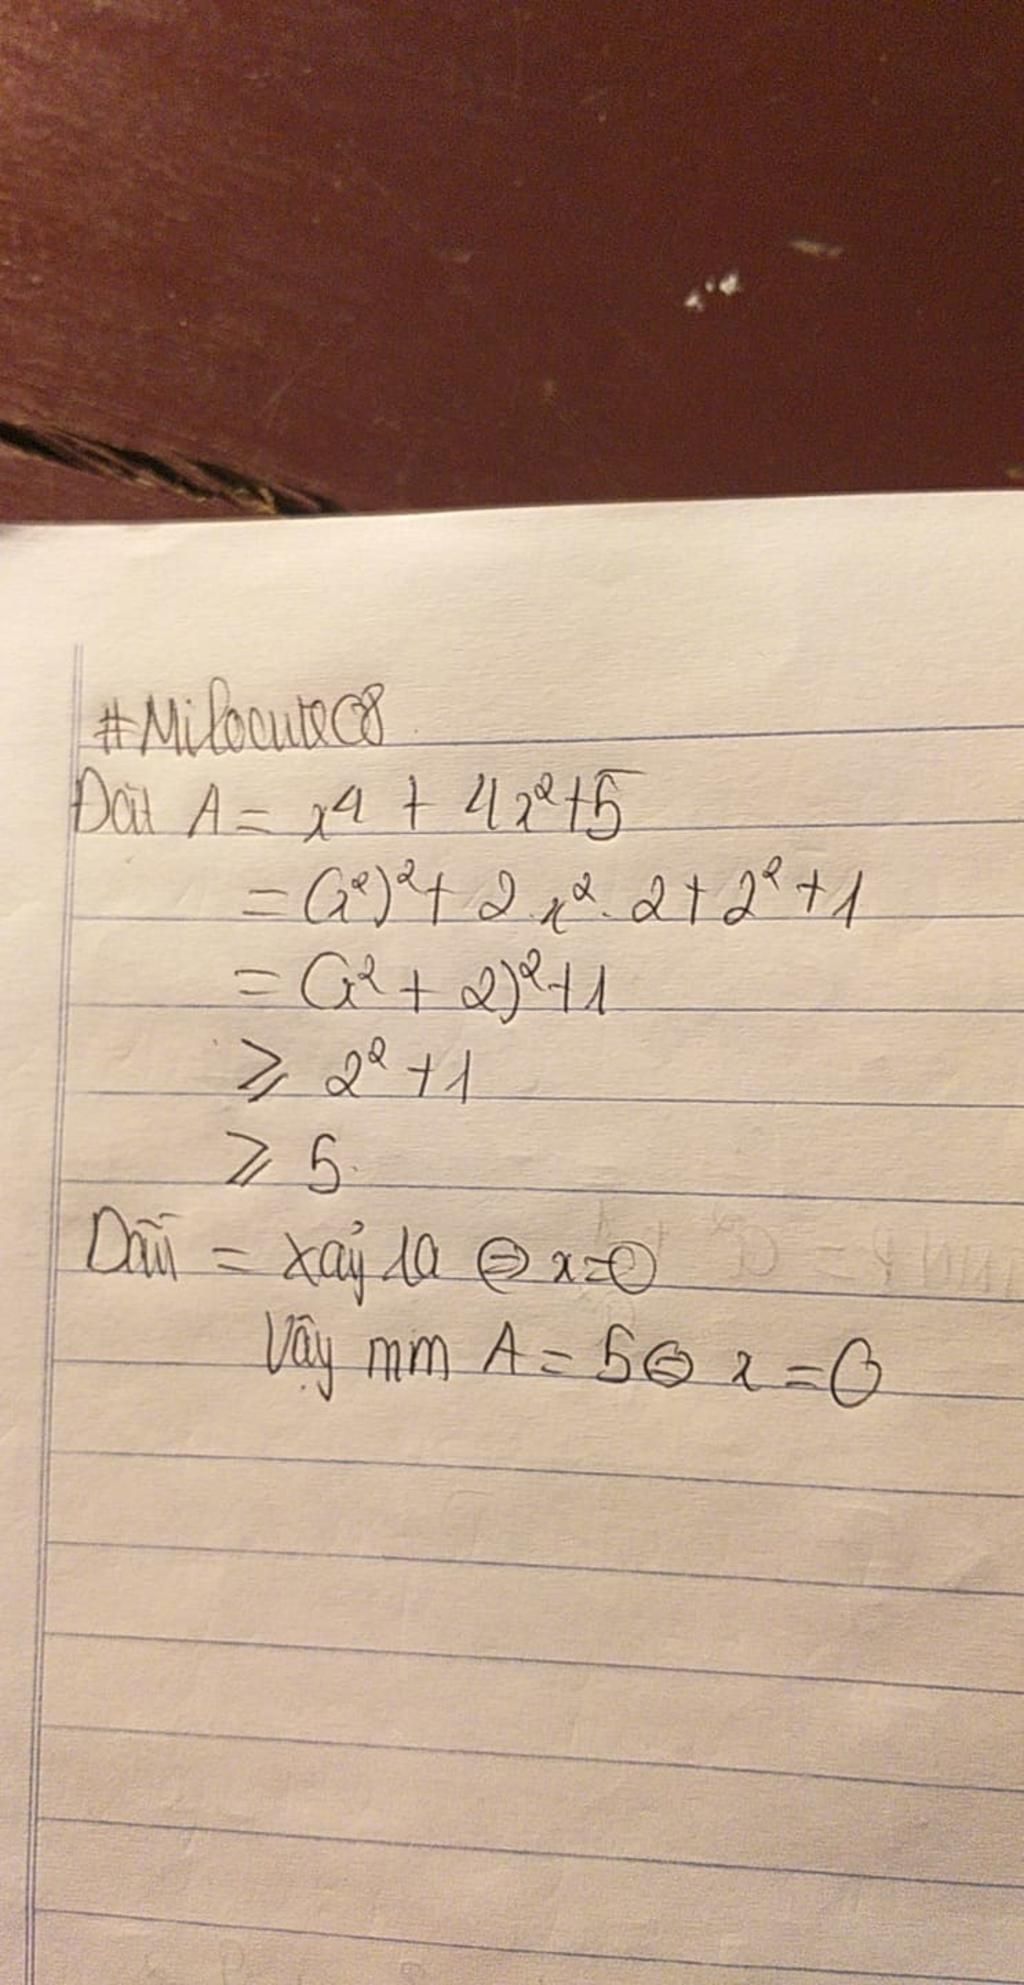 #Milocute08
Đặt A = x⁴ + 4x² + 5
= (x²)² + 2.x².2 + 2² + 1
= (x² + 2)² + 1
⩾ 2² + 1
⩾ 5
Dấu = xảy ra ⇔ x = 0
Vậy min A = 5 ⇔ x = 0